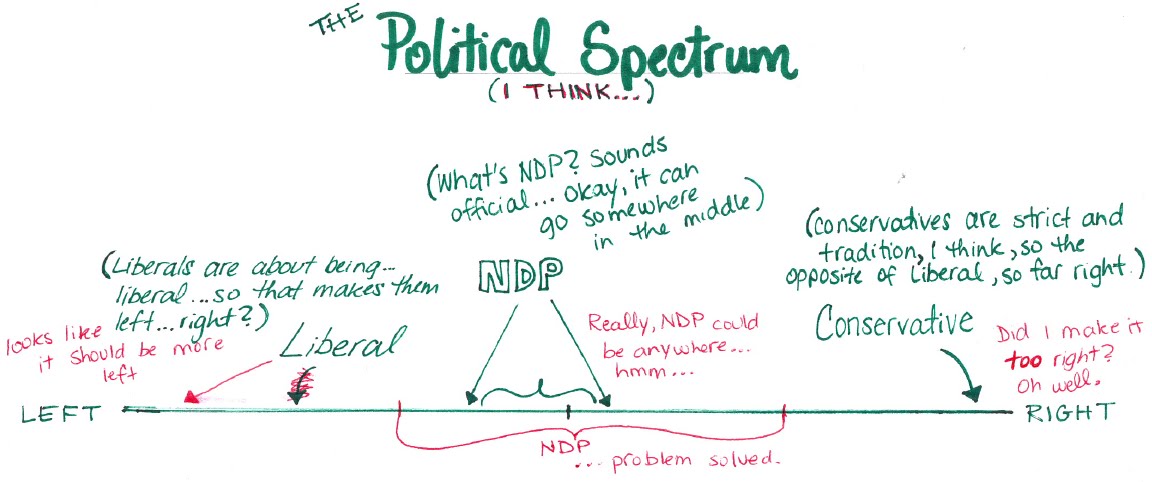 THE
Political Spectrum
(I THINK...)
(What's NDP? Sounds
official... okay, it can
go somewhere
in the middle)
(conservatives are strict and
tradition, I think, so the
opposite of Liberal, so far right.)
(Liberals are about being...
liberal...so that makes them
left...right?)
NDP
looks like
it should be more
left
Liberal
Really, NDP could
be anywhere...
hmm...
Conservative
Did I make it
too right?
Oh well.
LEFT
RIGHT
NDP
... problem solved.